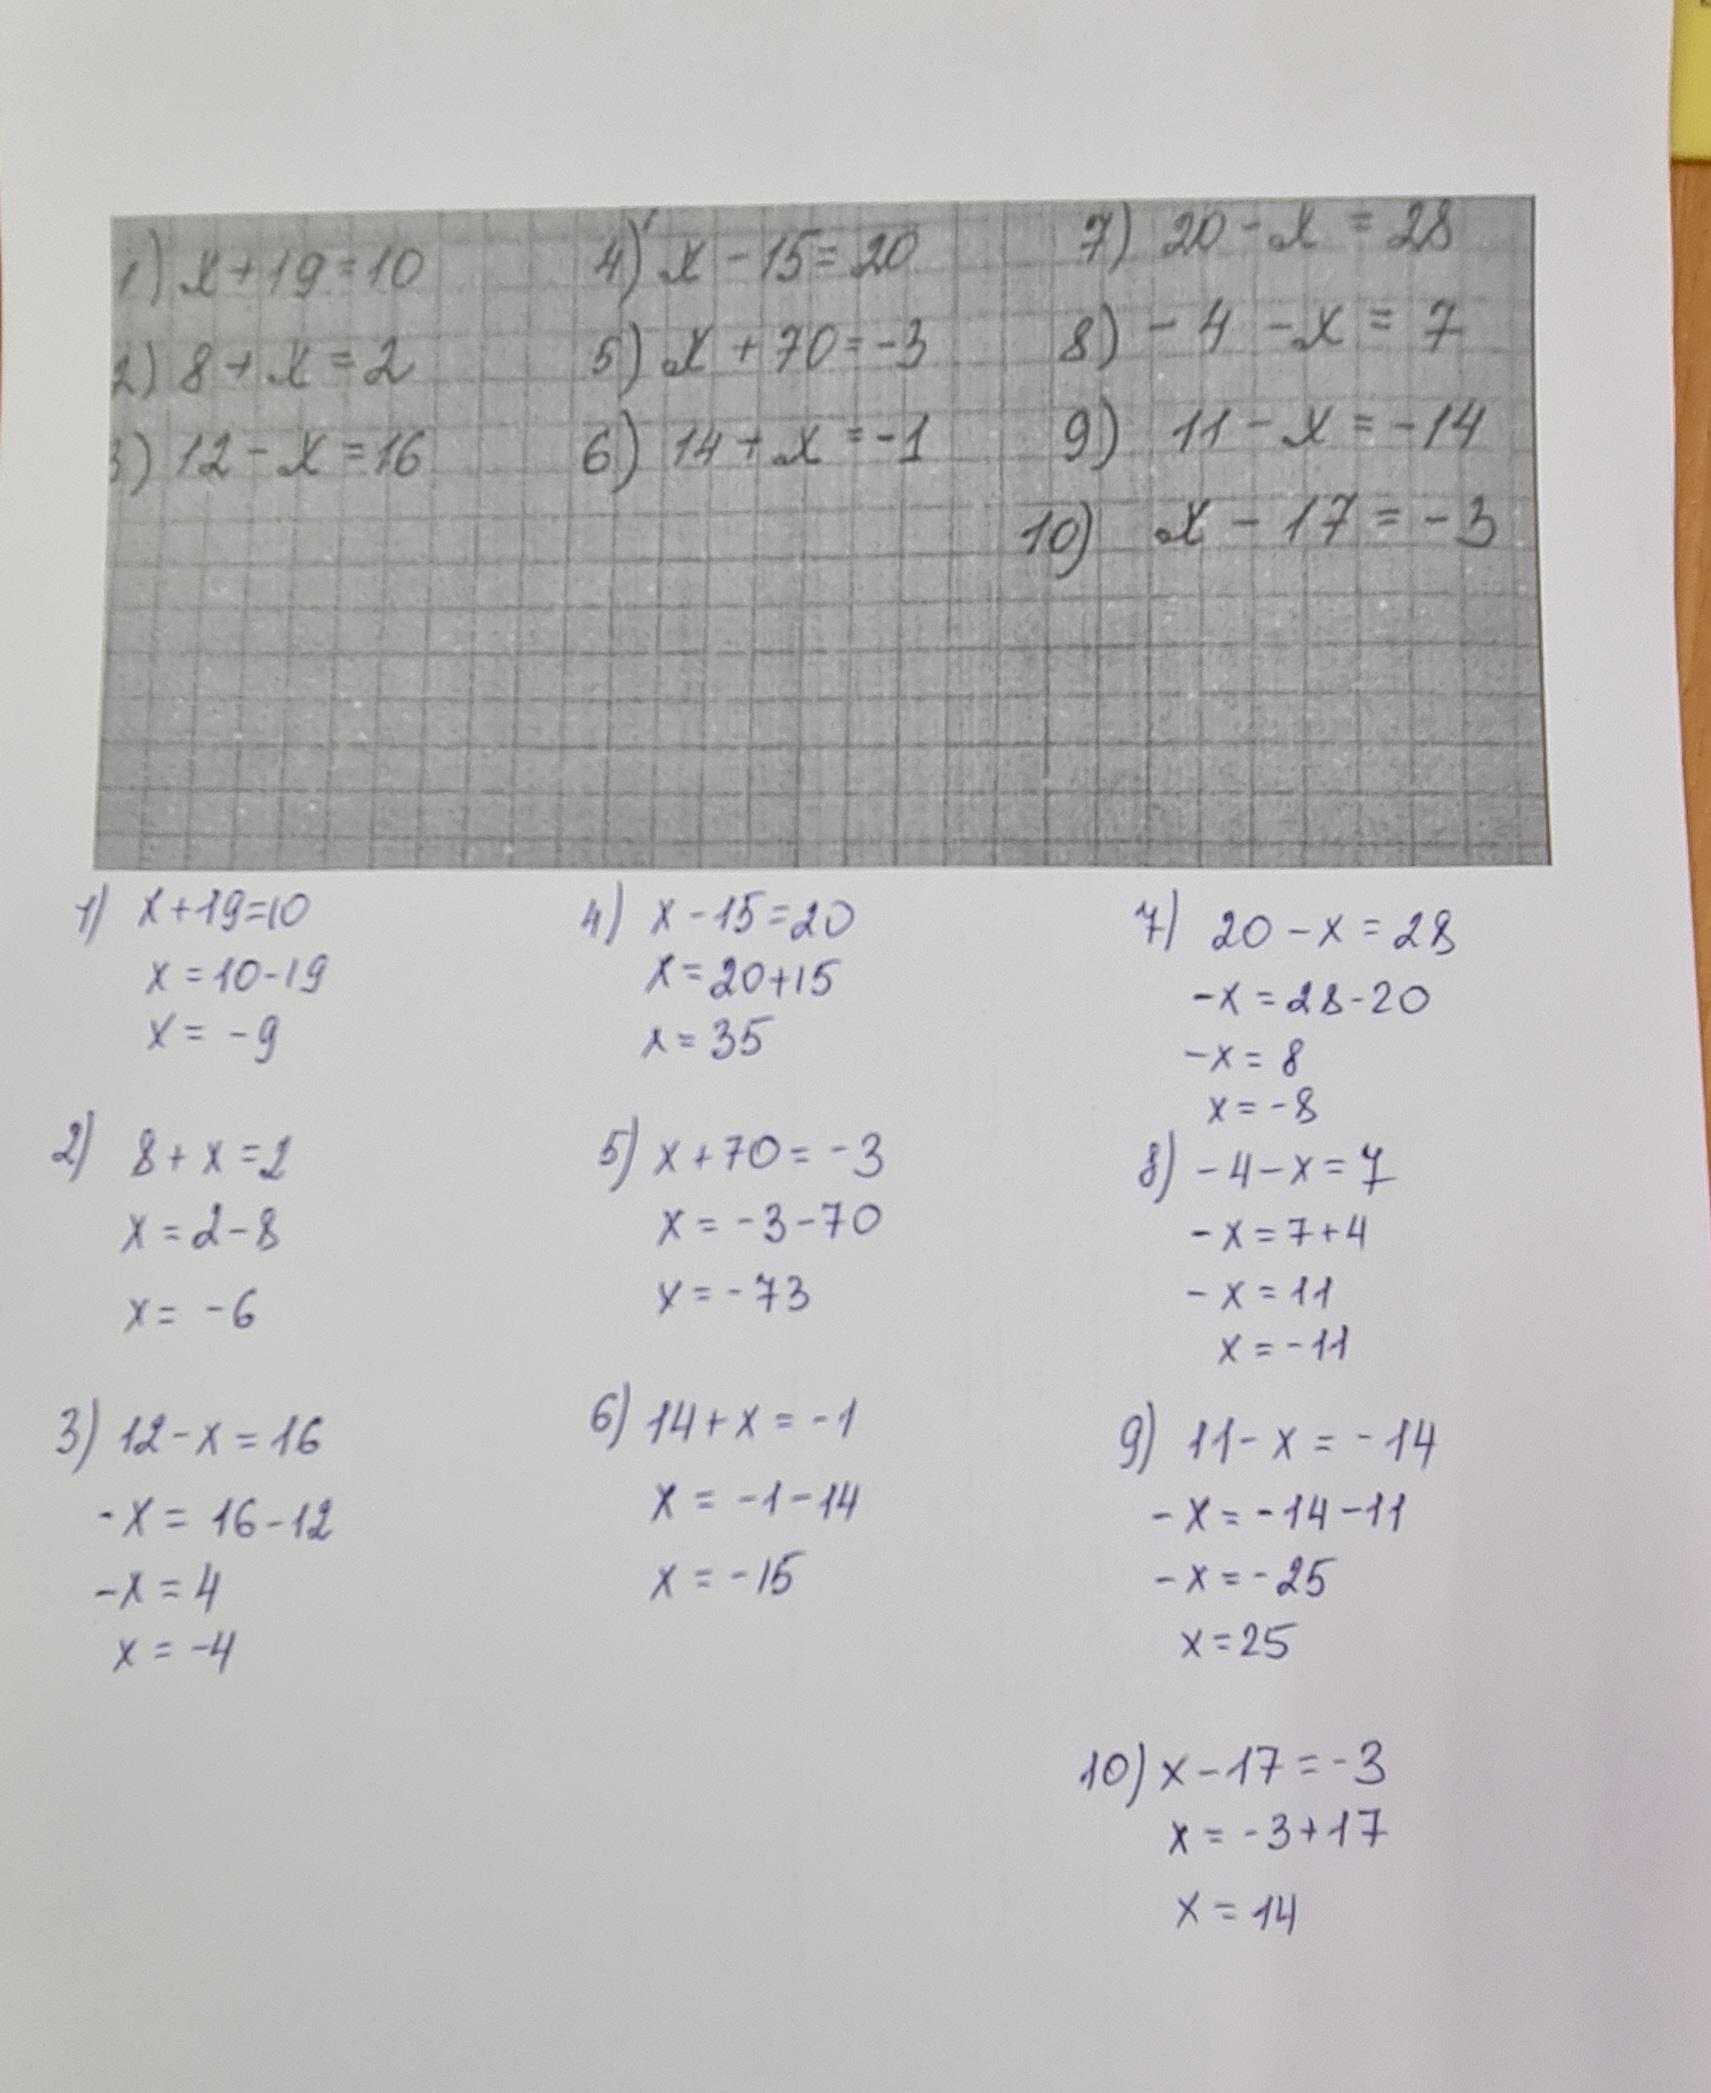 1) x+19=10
2) 8+x=2
3) 12-x=16
4) x-15=20
5) x+70=-3
6) 14+x=-1
7) 20-x=28
8) -4-x=7
9) 11-x=-14
10) x-17=-3
1) x+19=10
x=10-19
x=-9
2) 8+x=2
x=2-8
x=-6
3) 12-x=16
-x=16-12
-x=4
x=-4
4) x-15=20
x=20+15
x=35
5) x+70=-3
x=-3-70
x=-73
6) 14+x=-1
x=-1-14
x=-15
7) 20-x=28
-x=28-20
-x=8
x=-8
8) -4-x=7
-x=7+4
-x=11
x=-11
9) 11-x=-14
-x=-14-11
-x=-25
x=25
10) x-17=-3
x=-3+17
x=14